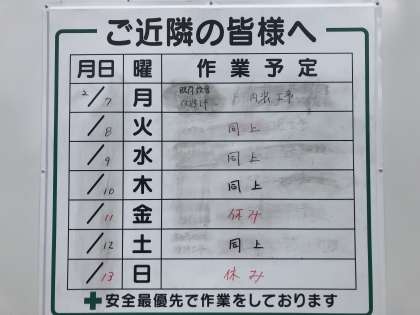 ご近隣の皆様へ
月日 曜 作業予定
2/7 月 内装工事
/8 火 同上
/9 水 同上
/10 木 同上
/11 金 休み
/12 土 同上
/13 日 休み
安全最優先で作業をしております